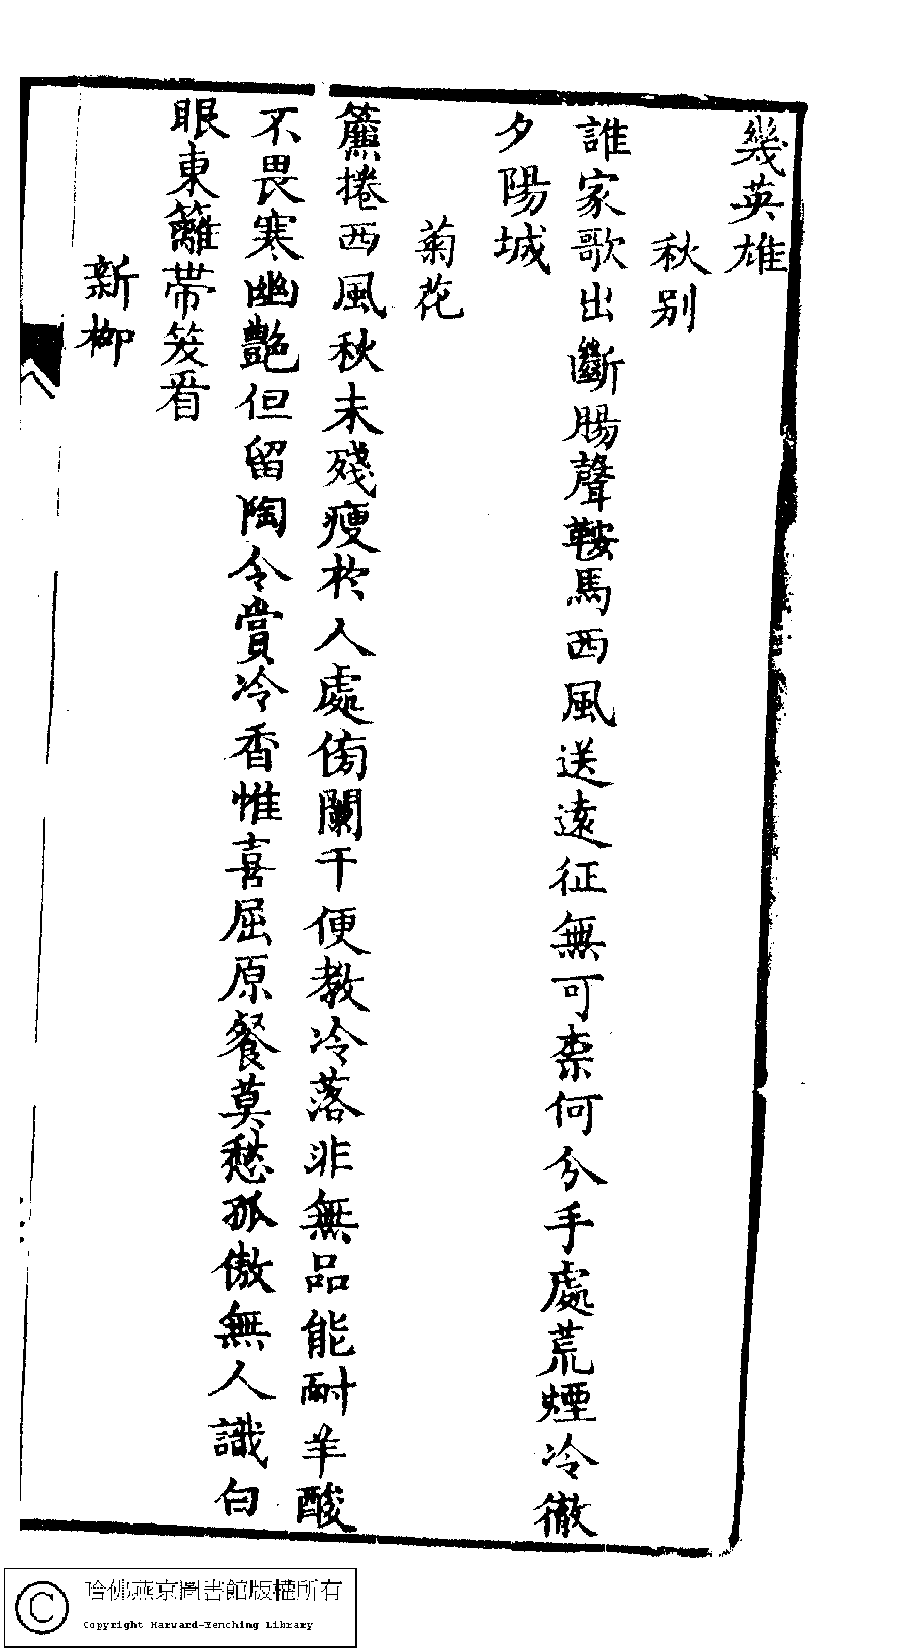 幾英雄
秋別
誰家歌出斷腸聲鞍馬西風送遠征無可柰何分手處荒煙冷徹
夕陽城
菊花
簾捲西風秋未殘瘦於人處傍闌干便教冷落非無品能耐辛酸
不畏寒幽艶但留陶令賞冷香惟喜屈原餐莫愁孤傲無人識白
眼東籬帶笑看
新柳
哈佛燕京圖書館版權所有
Copyright Harvard-Yenching Library